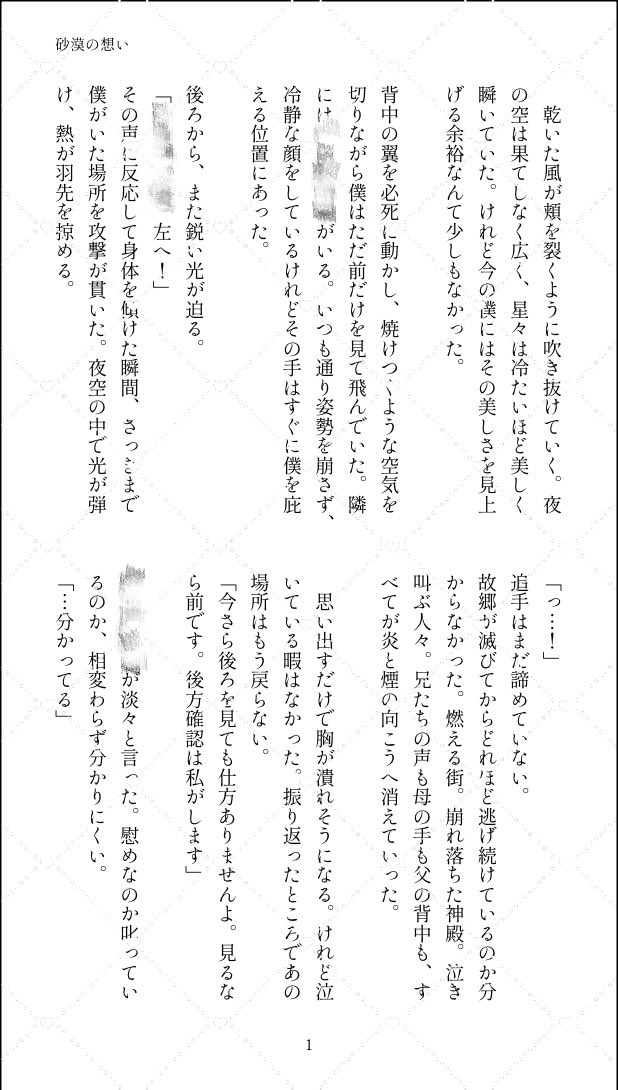 砂漠の想い
乾いた風が頬を裂くように吹き抜けていく。夜
の空は果てしなく広く、星々は冷たいほど美しく
瞬いていた。けれど今の僕にはその美しさを見上
げる余裕なんて少しもなかった。
背中の翼を必死に動かし、焼けつくような空気を
切りながら僕はただ前だけを見て飛んでいた。隣
には がいる。いつも通り姿勢を崩さず、
冷静な顔をしているけれどその手はすぐに僕を庇
える位置にあった。
後ろから、また鋭い光が迫る。
「 左へ!」
その声に反応して身体を傾けた瞬間、さっきまで
僕がいた場所を攻撃が貫いた。夜空の中で光が弾
け、熱が羽先を掠める。
「っ…!」
追手はまだ諦めていない。
故郷が滅びてからどれほど逃げ続けているのか分
からなかった。燃える街。崩れ落ちた神殿。泣き
叫ぶ人々。兄たちの声も母の手も父の背中も、す
べてが炎と煙の向こうへ消えていった。
思い出すだけで胸が潰れそうになる。けれど泣
いている暇はなかった。振り返ったところであの
場所はもう戻らない。
「今さら後ろを見ても仕方ありませんよ。見るな
ら前です。後方確認は私がします」
が淡々と言った。慰めなのか叱ってい
るのか、相変わらず分かりにくい。
「…分かってる」
1